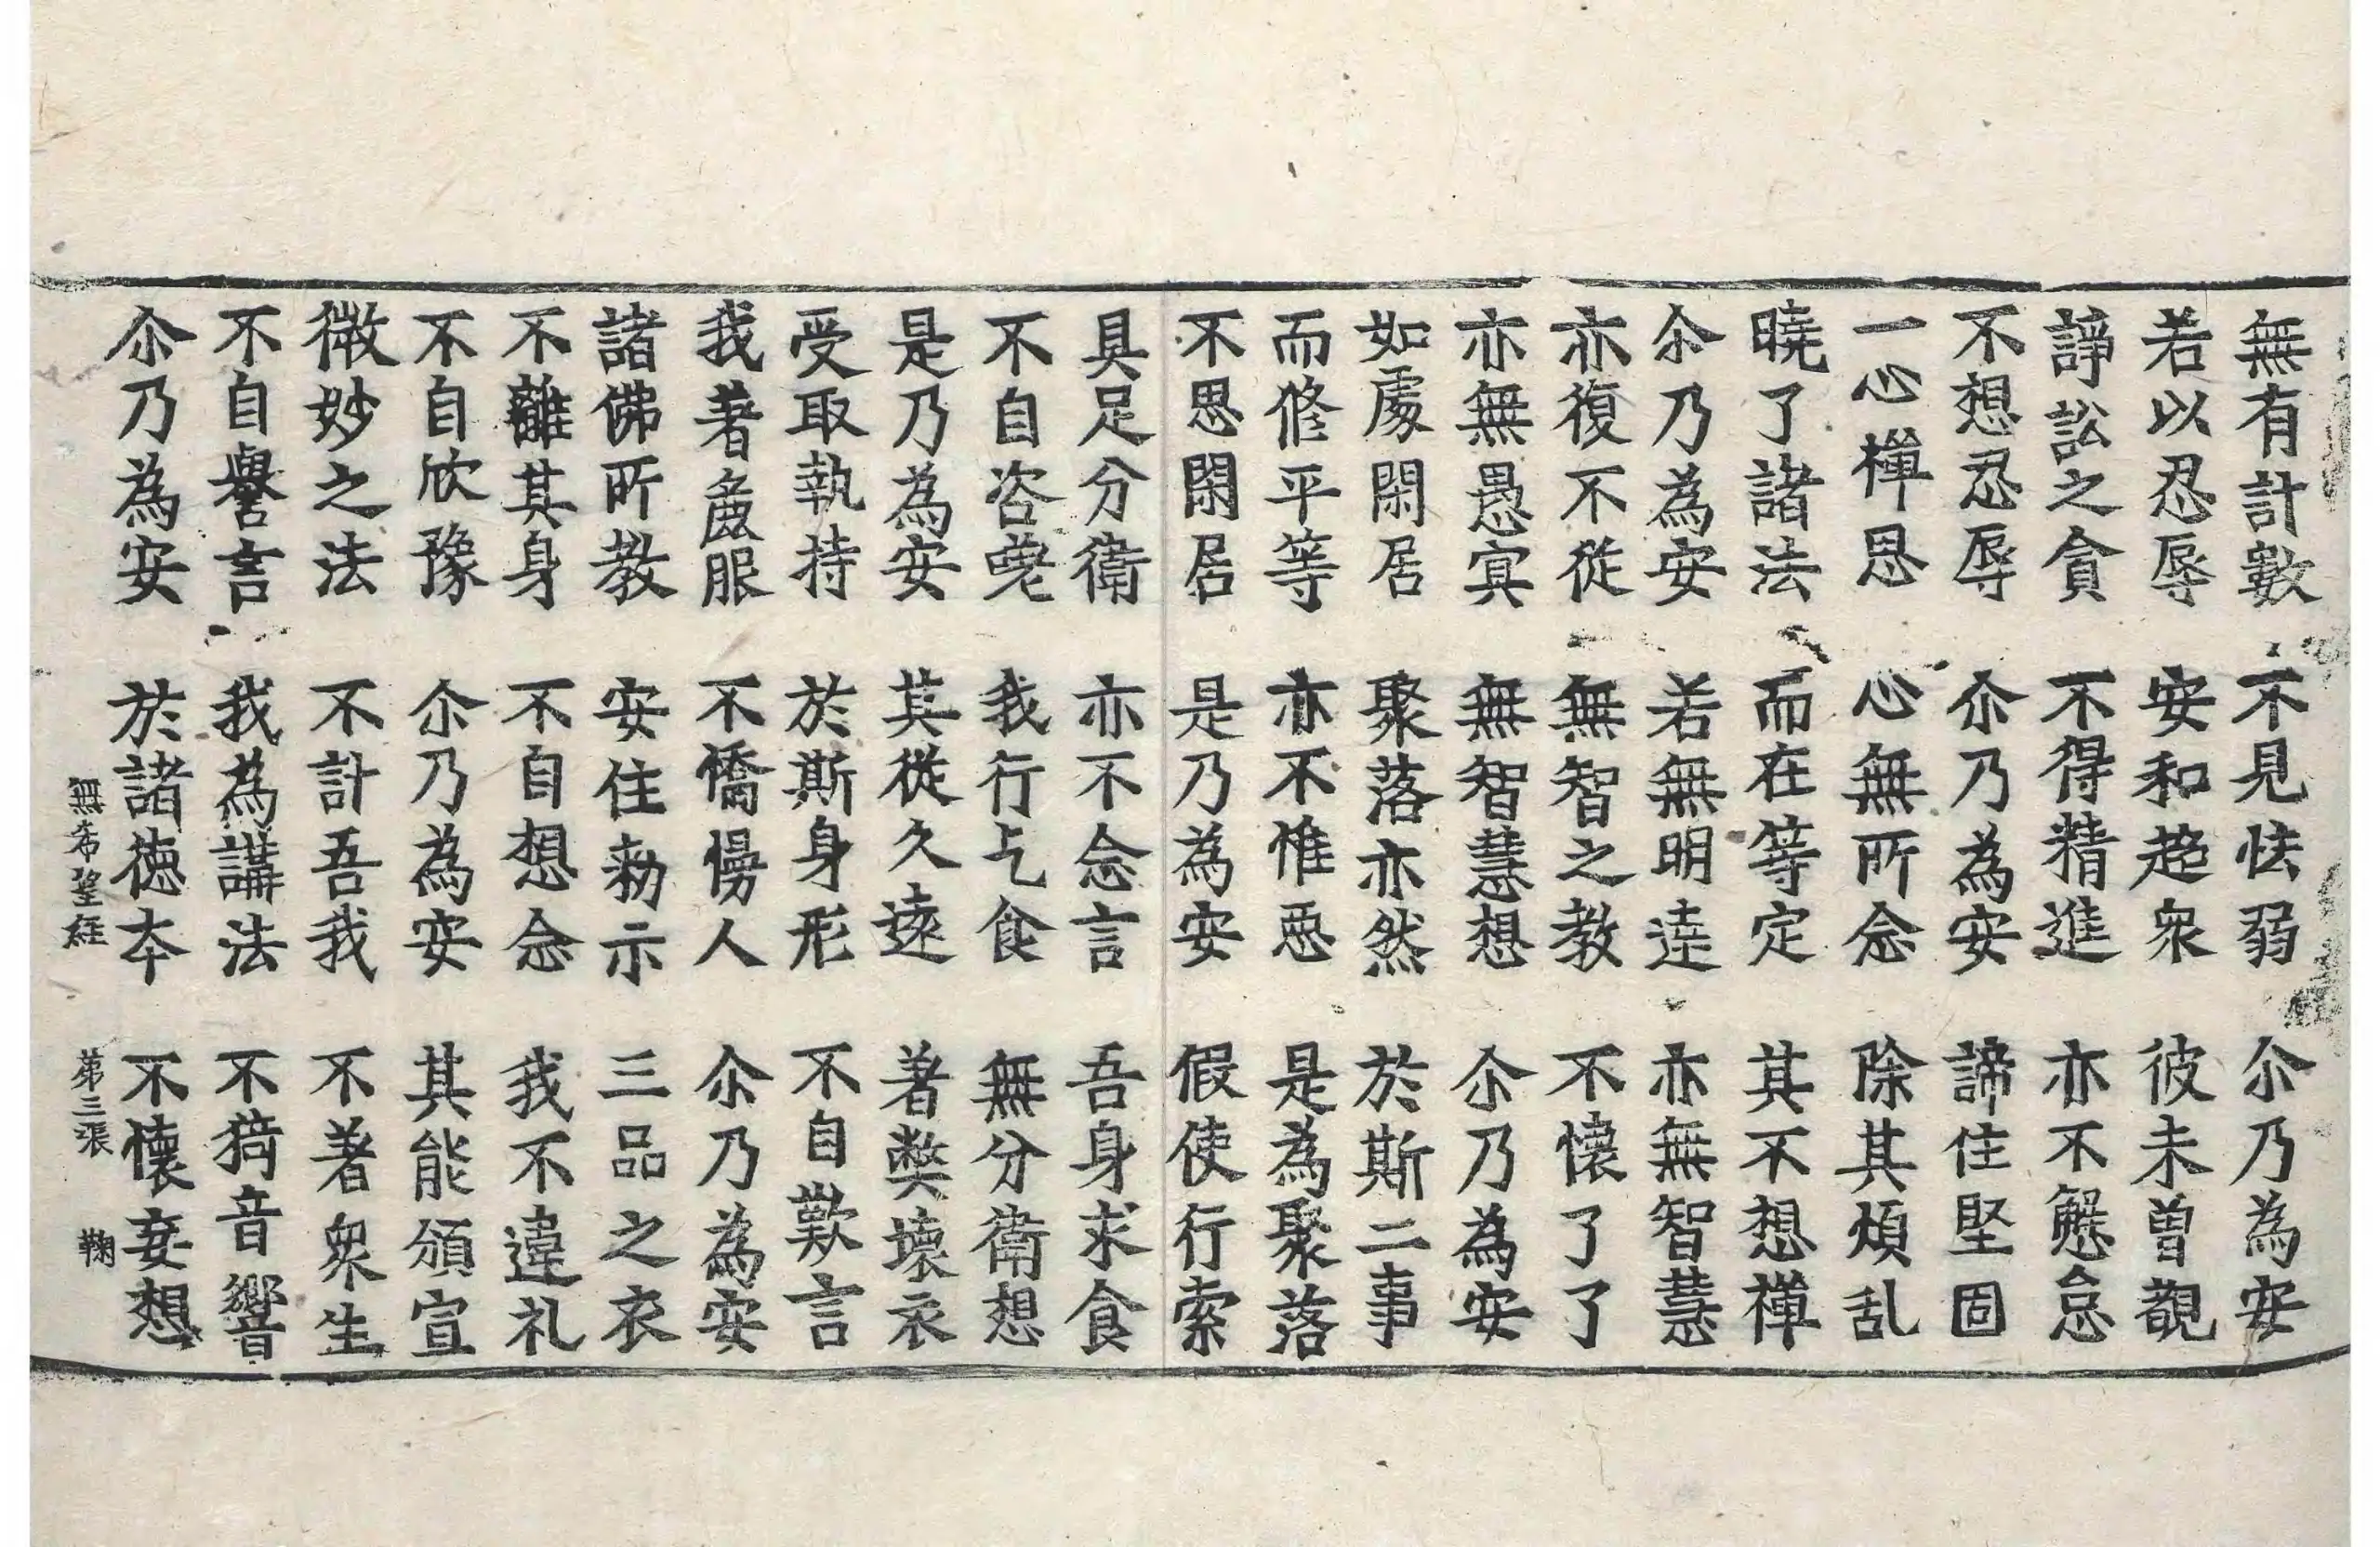 無有計數 不見怯弱 尒乃為安
若以忍辱 安和超衆 彼未曾覩
諍訟之貪 不得精進 亦不懈怠
不想忍辱 尒乃為安 諦住堅固
一心禪思 心無所念 除其煩乱
曉了諸法 而在等定 其不想禪
尒乃為安 若無明達 亦無智慧
亦復不從 無智之教 不懷了了
亦無愚冥 無智慧想 尒乃為安
如處閑居 聚落亦然 於斯二事
而修平等 亦不惟惡 是為聚落
不思閑居 是乃為安 假使行索
具足分衛 亦不念言 吾身求食
不自咨嗟 我行乞食 無分衛想
是乃為安 其從久遠 著弊壞衣
受取執持 於斯身形 不自歎言
我著麁服 不憍慢人 尒乃為安
諸佛所教 安住勑示 三品之衣
不離其身 不自想念 我不違礼
不自欣豫 尒乃為安 其能頒宣
微妙之法 不計吾我 不著衆生
不自譽言 我為講法 不猗音響
尒乃為安 於諸德本 不懷妄想
無希望經 第三張 鞠